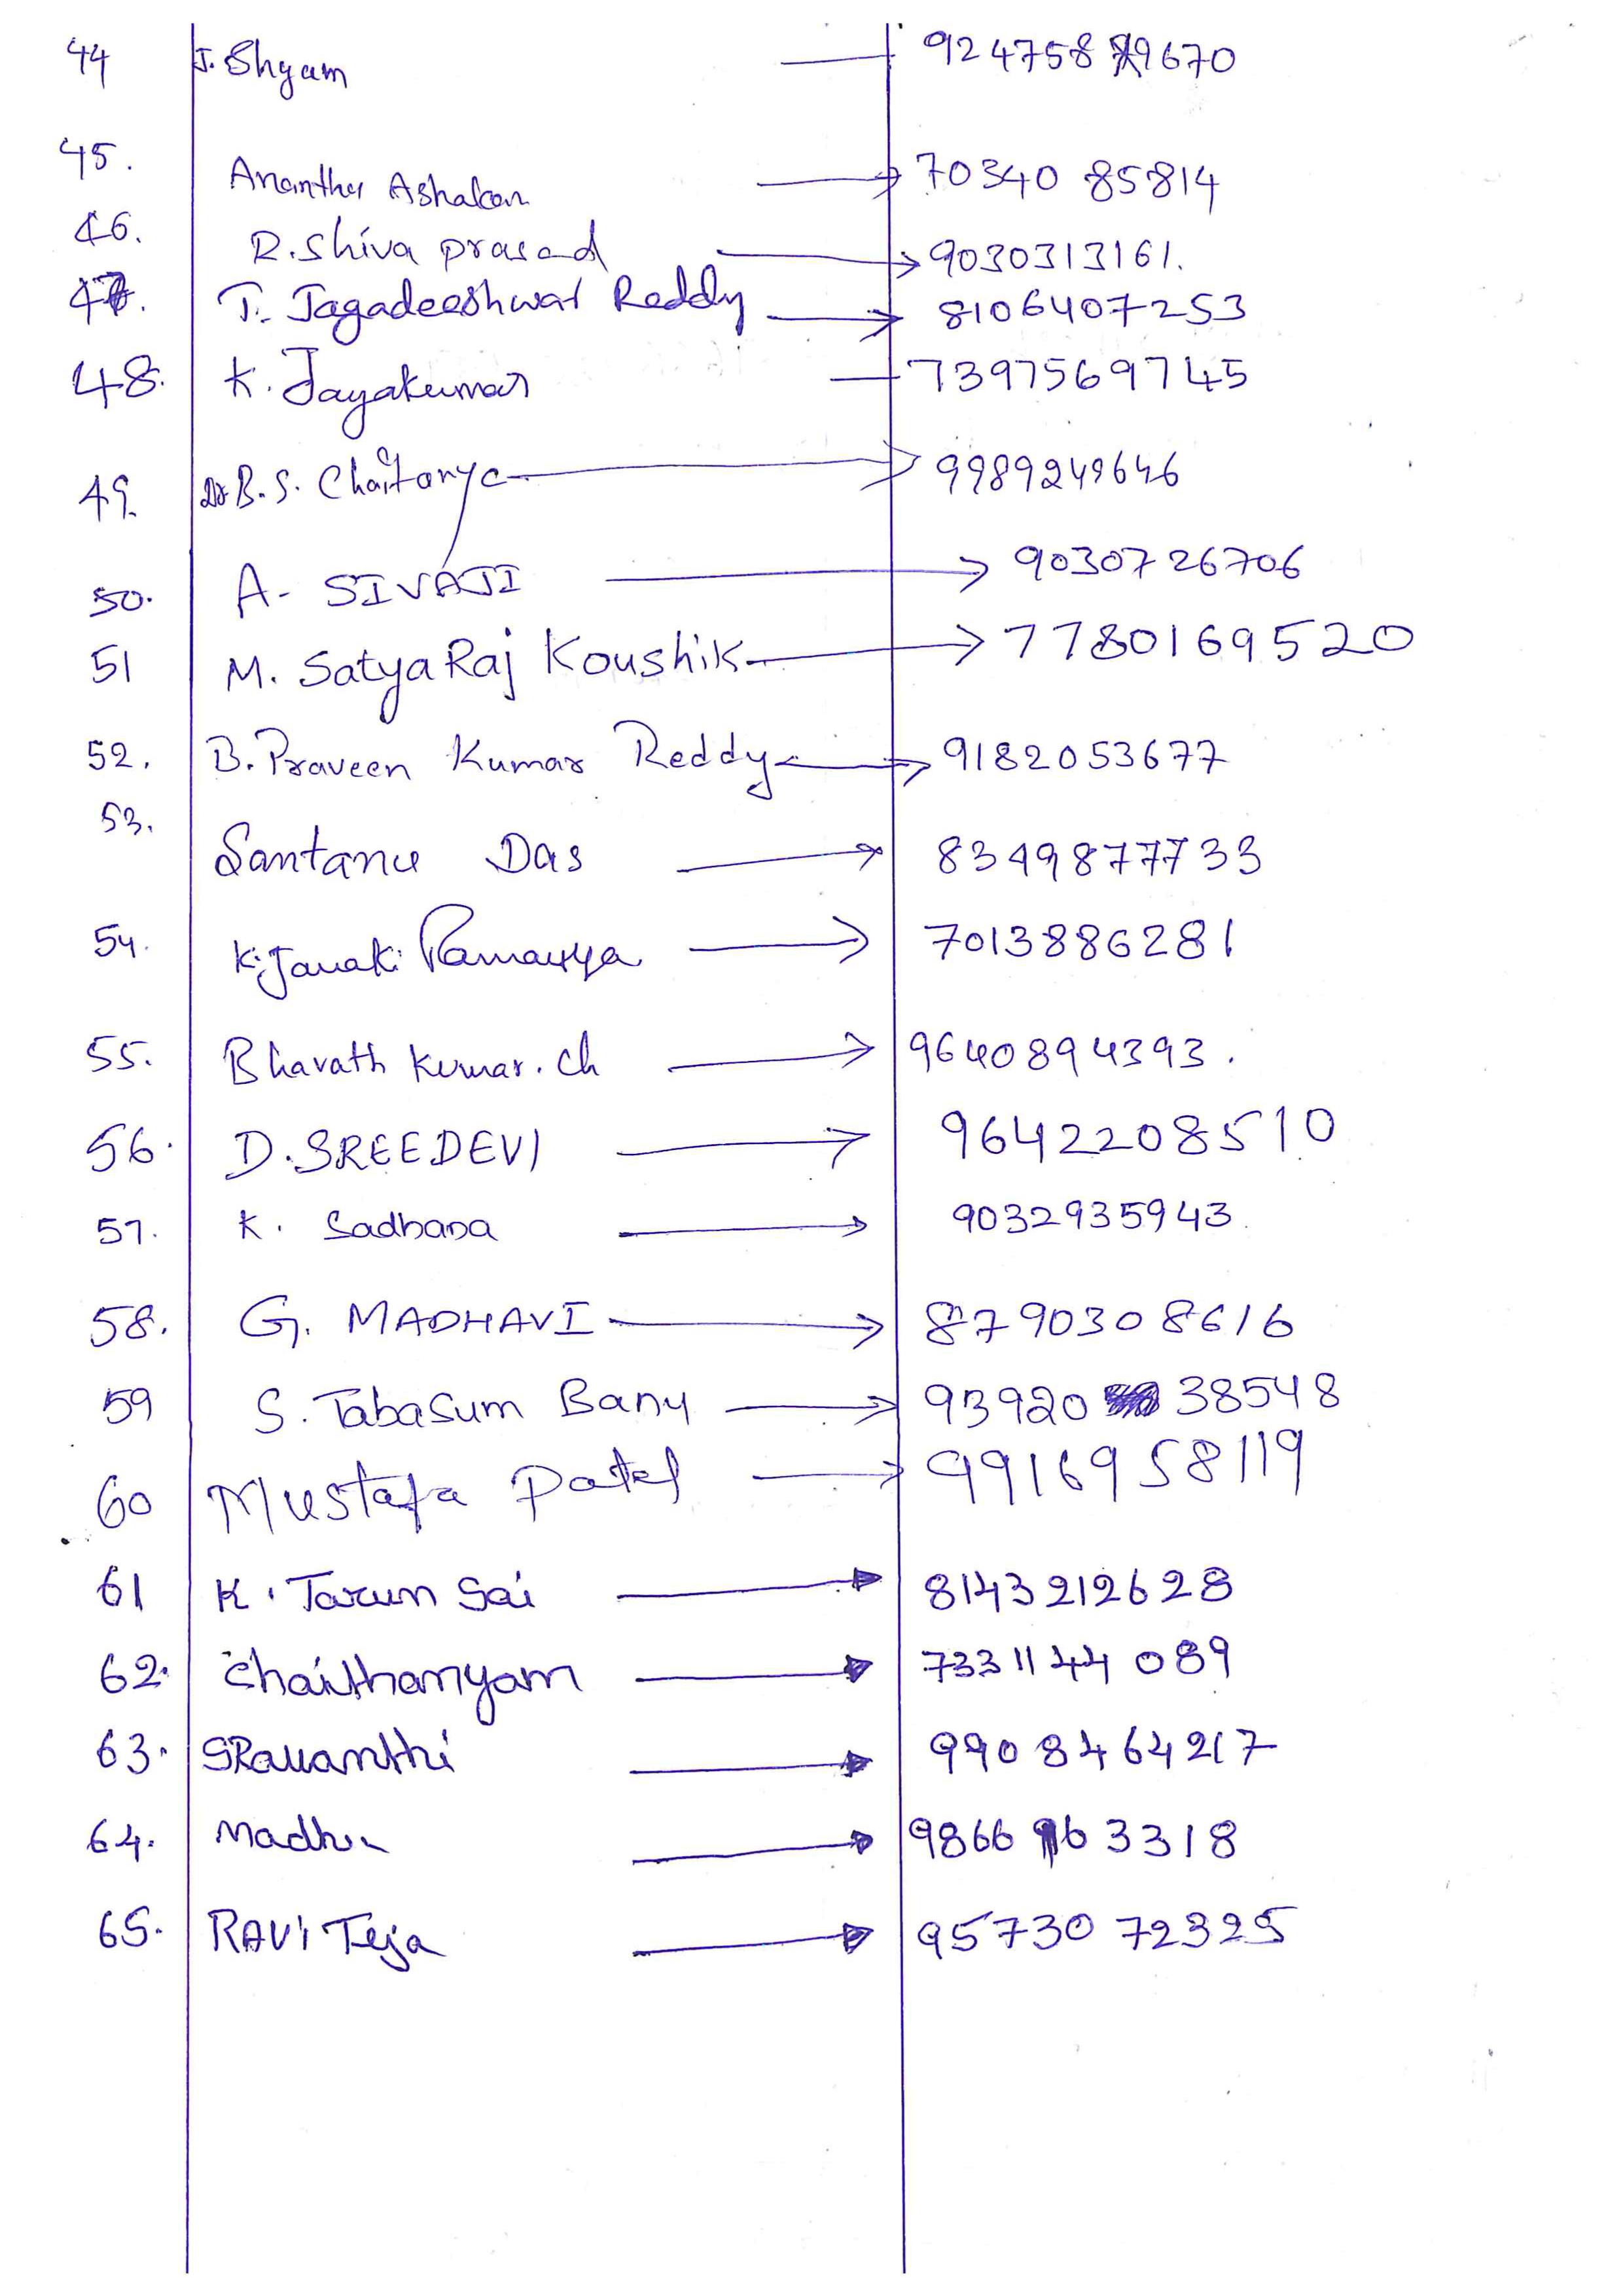 44 J. Shyam — 924758 9670
45. Anantha Ashakan → 70340 85814
46. R. Shiva prasad → 9030313161.
47. T. Jagadeeshwar Reddy → 8106407253
48. K. Jayakumar — 7397569745
49. Dr B. S. Chaitanya → 9989249646
50. A- SIVAJI → 9030726706
51 M. Satya Raj Koushik → 7780169520
52. B. Praveen Kumar Reddy → 9182053677
53. Santanu Das → 8349877733
54. K. Janaki Ramayya → 7013886281
55. Bharath Kumar. ch → 9640894393.
56. D. SREEDEVI → 9642208510
57. K. Sadhana → 9032935943.
58. G. MADHAVI → 8790308616
59 S. Tabasum Banu → 93920 38548
60 Mustafa Patel → 9916958119
61 K. Tarun Sai → 8143212628
62. Chaithanyam → 733 1144 089
63. SRavanthi → 9908464217
64. Madhu → 9866 963318
65. RAVI Teja → 95730 72325